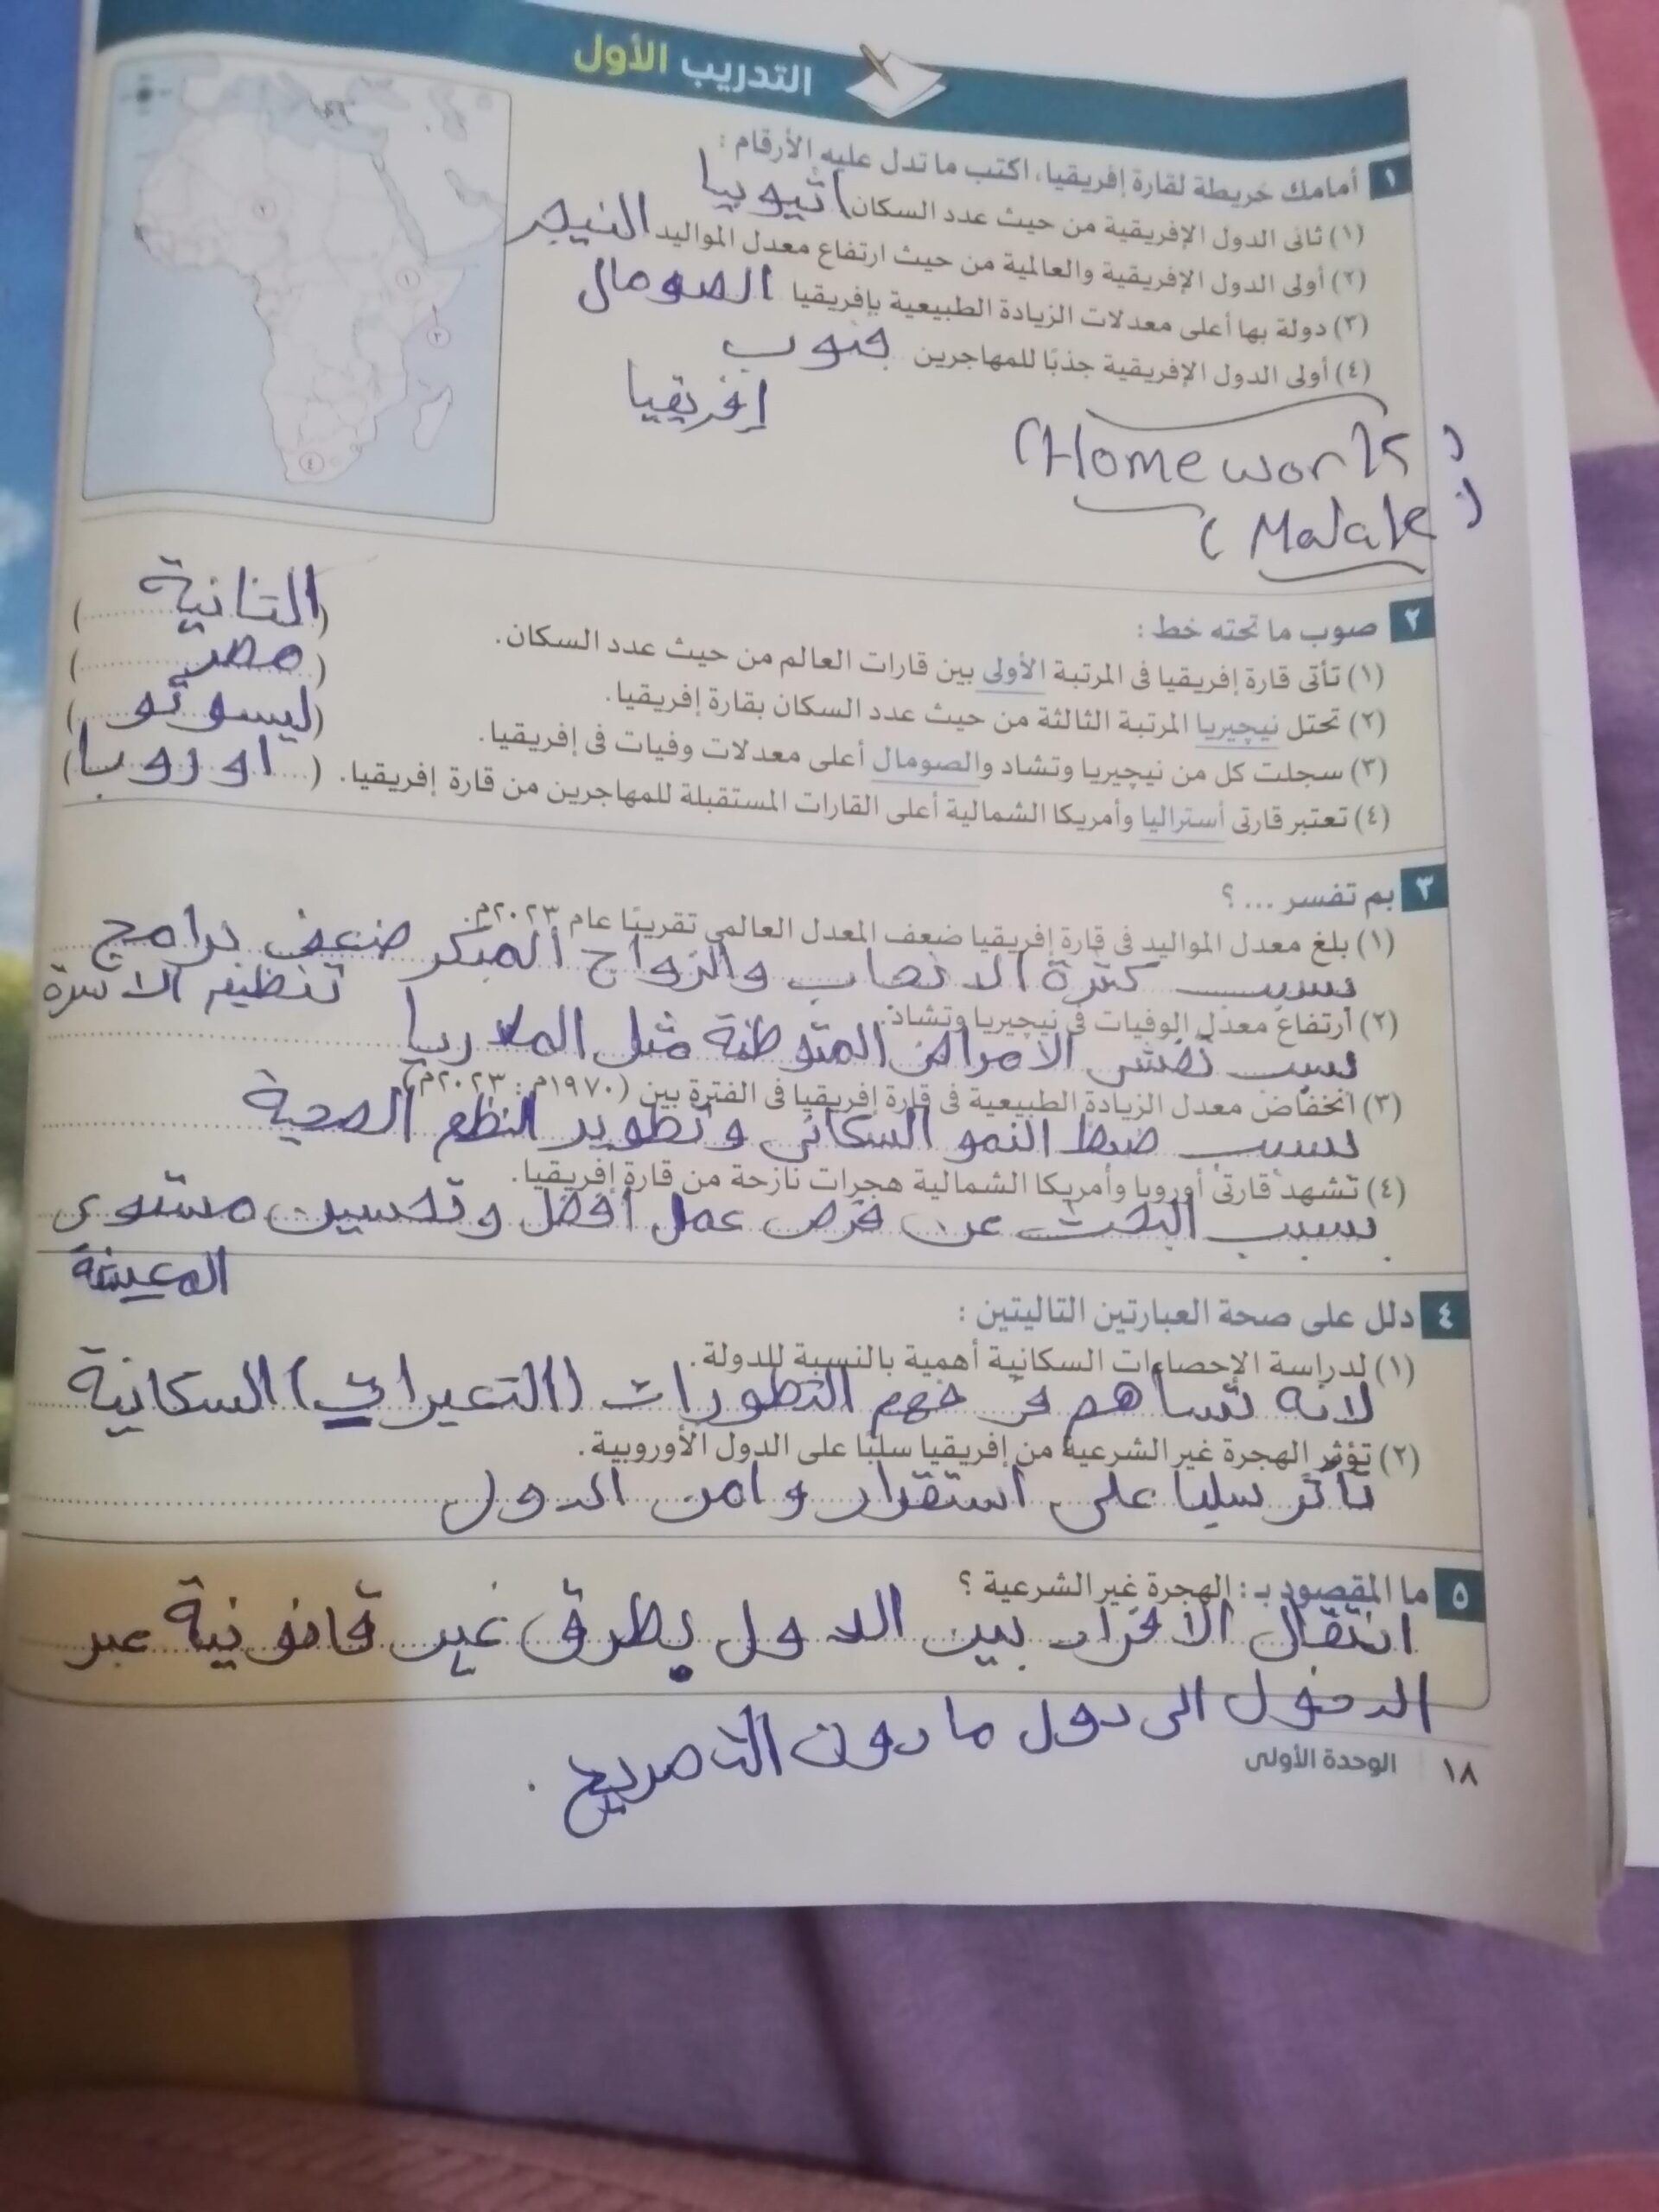 التدريب الأول
١ أمامك خريطة لقارة إفريقيا، اكتب ما تدل عليه الأرقام :
(١) ثانى الدول الإفريقية من حيث عدد السكان اثيوبيا
(٢) أولى الدول الإفريقية والعالمية من حيث ارتفاع معدل المواليد النيجر
(٣) دولة بها أعلى معدلات الزيادة الطبيعية بإفريقيا الصومال
(٤) أولى الدول الإفريقية جذبًا للمهاجرين جنوب
إفريقيا
٢
١
٣
٤
Homework
Malak
٢ صوب ما تحته خط :
(١) تأتى قارة إفريقيا فى المرتبة الأولى بين قارات العالم من حيث عدد السكان. (الثانية)
(٢) تحتل نيجيريا المرتبة الثالثة من حيث عدد السكان بقارة إفريقيا. (مصر)
(٣) سجلت كل من نيجيريا وتشاد والصومال أعلى معدلات وفيات فى إفريقيا. (ليسوتو)
(٤) تعتبر قارتى أستراليا وأمريكا الشمالية أعلى القارات المستقبلة للمهاجرين من قارة إفريقيا. (اوروبا)
٣ بم تفسر ... ؟
(١) بلغ معدل المواليد فى قارة إفريقيا ضعف المعدل العالمى تقريبًا عام ٢٠٢٣م.
بسبب كثرة الانجاب والزواج المبكر ضعف برامج
تنظيم الاسرة
(٢) ارتفاع معدل الوفيات فى نيجيريا وتشاد.
بسبب تفشى الامراض المتوطنة مثل الملاريا
(٣) انخفاض معدل الزيادة الطبيعية فى قارة إفريقيا فى الفترة بين (١٩٧٠م : ٢٠٢٣م)
بسبب ضبط النمو السكانى وتطوير النظم الصحية
(٤) تشهد قارتى أوروبا وأمريكا الشمالية هجرات نازحة من قارة إفريقيا.
بسبب البحث عن فرص عمل افضل وتحسين مستوى
المعيشة
٤ دلل على صحة العبارتين التاليتين :
(١) لدراسة الإحصاءات السكانية أهمية بالنسبة للدولة.
لانه تساهم فى فهم التطورات (التغيرات) السكانية
(٢) تؤثر الهجرة غير الشرعية من إفريقيا سلبًا على الدول الأوروبية.
تأثر سلبا على استقرار وامن الدول
٥ ما المقصود بـ : الهجرة غير الشرعية ؟
انتقال الافراد بين الدول بطرق غير قانونية عبر
الدخول الى دول ما دون التصريح .
١٨ | الوحدة الأولى